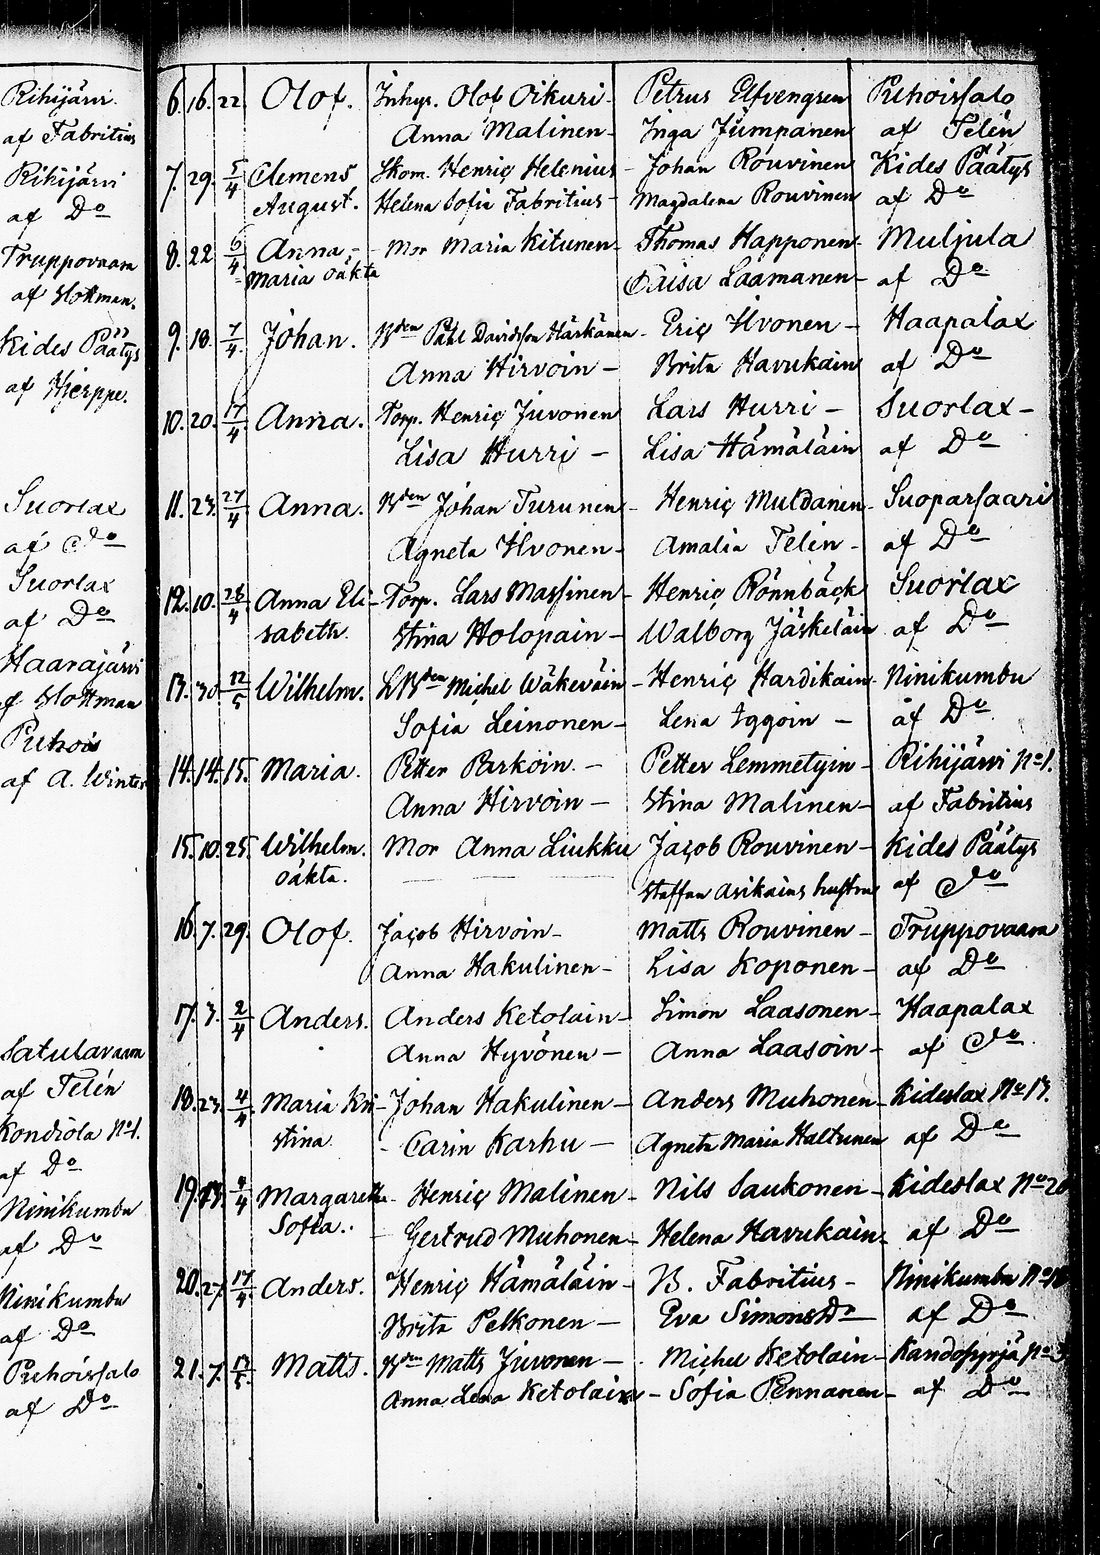 Rihijärvi
af Fabritius
Rihijärvi
af Do
Truppovaara
af Hottman.
Kides Päätys
af Hjerppe.
Suorlax
af Do
Suorlax
af Do
Haarajärvi
af Hottman
Puhois
af A. Winter
Satulavaara
af Telén
Kondiola No 1.
af Do
Ninikumbu
af Do
Ninikumbu
af Do
Puhoissalo
af Do
6. 16. 22 Olof. Inhys. Olof Oikuri - Petrus Elfvengren Puhoissalo
Anna Malinen - Inga Jumpanen af Telén
7. 29. 5/4 Clemens Skom. Henric Helenius - Johan Rouvinen Kides Päätys
August. Helena Sofia Fabritius - Magdalena Rouvinen af Do
8. 22 6/4 Anna - Mor Maria Kitunen - Thomas Happonen - Muljula
Maria oäkta Caisa Laamanen - af Do
9. 18. 7/4 Johan. Bden Påhl Davidsson Härkänen - Eric Ilvonen - Haapalax
Anna Hirvoin - Brita Havukain af Do
10. 20. 17/4 Anna. Torp. Henric Juvonen Lars Hurri - Suorlax -
Lisa Hurri - Lisa Hämäläin af Do
11. 23. 27/4 Anna. Bden Johan Turunen - Henric Muldanen - Suoparsaari
Agneta Ilvonen - Amalia Telén - af Do
12. 10. 28/4 Anna Eli- Torp. Lars Massinen - Henric Rönnbäck Suorlax
sabeth. Stina Holopain - Walborg Jäskeläin af Do
13. 30 12/5 Wilhelm. LBden Michel Wäkeväin - Henric Hardikain - Ninikumbu
Sofia Leinonen - Lena Iggoin - af Do
14. 14. 15. Maria. Petter Parkoin. - Petter Lemmetyin - Rihijärvi No 1.
Anna Hirvoin - Stina Malinen - af Fabritius
15. 10. 25. Wilhelm. Mor Anna Liukku Jacob Rouvinen - Kides Päätys
oäkta. Staffan Asikains hustru af Do
16. 7. 29. Olof. Jacob Hirvoin - Matts Rouvinen - Truppovaara
Anna Hakulinen - Lisa Koponen - af Do
17. 3. 2/4 Anders. Anders Ketolain - Simon Laasonen - Haapalax
Anna Hyvönen - Anna Laasoin - af Do
18. 23. 4/4 Maria Kri- Johan Hakulinen - Anders Muhonen - Kideslax No 13.
stina. Carin Karhu - Agneta Maria Haltunen af Do
19. 4/4 Margaretha - Henric Malinen - Nils Saukonen - Kideslax No 20
Sofia. Gertrud Muhonen - Helena Havukain - af Do
20. 27. 17/4 Anders. Henric Hämäläin - B. Fabritius - Ninikumbu
Brita Pelkonen - Eva Simonsdr af Do
21. 7. Matts. Bden Matts Juvonen - Michel Ketolain - Kandopyrjä No 3
Anna Lena Ketolain - Sofia Pennanen - af Do